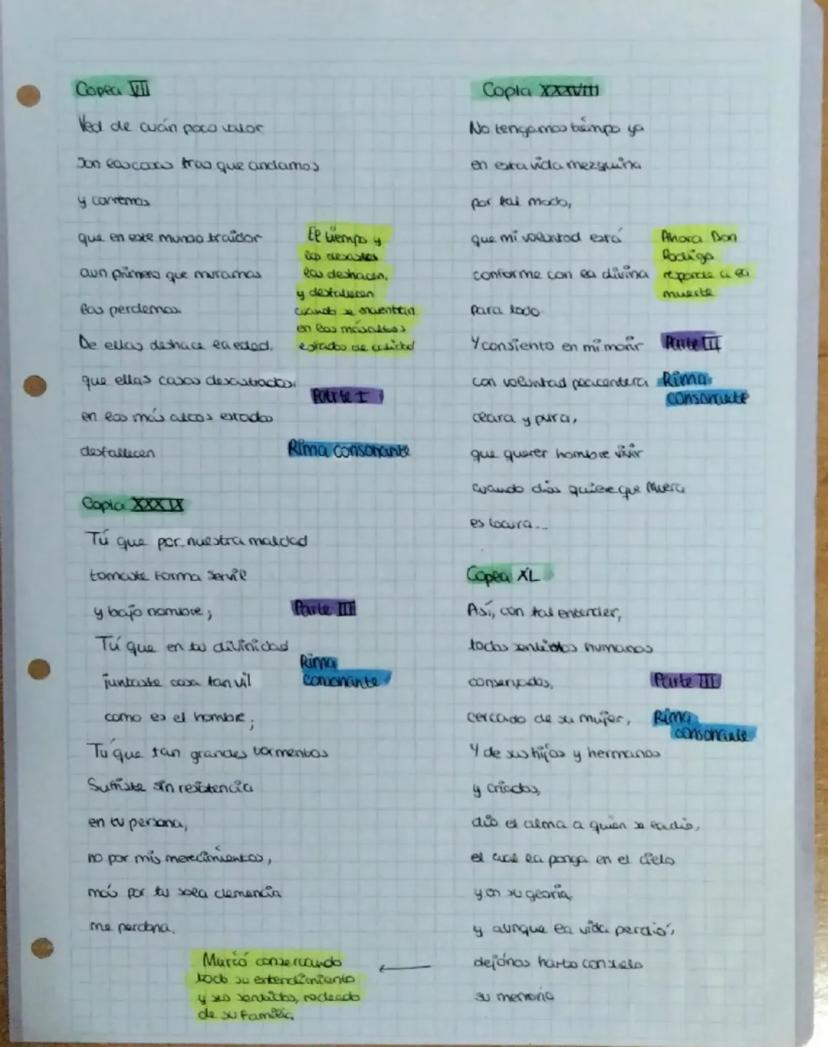 Copla VII
Ved de cuán poco valor
son las cosas tras que andamos
y corremos
que en este mundo traidor
aun primero que muramos
las perdemos
De ellas deshace la edad.
que ellas casos desastrados,
en los más altos estados
desfallecen
El tiempo y
los desastres
las deshacen,
y desfallecen
cuando se encuentran
en los más altos
estados de
Parte I
Rima consonante
Copla XXXIX
Tú que por nuestra maldad
tomaste forma servil
y bajo nombre;
Parte III
Tú que en tu divinidad
juntaste cosa tan vil
como es el hombre;
Rima
consonante
Tú que tan grandes tormentos
Sufriste sin resistencia
en tu persona,
no por mis merecimientos,
más por tu sola clemencia
me perdona.
Copla XXXVIII
No tengamos tiempo ya
en esta vida mezquina
por tal modo,
que mi voluntad está
conforme con la divina
para todo.
Ahora Don
Rodrigo
responde a la
muerte
Y consiento en mi morir
Parte III
con voluntad placentera
clara y pura,
Rima
consonante
que querer hombre vivir
cuando dios quiere que Muera
es locura...
Copla XL
Así, con tal entender,
todos sentidos humanos
conservados,
Parte III
cercado de su mujer,
Rima
consonante
Y de sus hijos y hermanos
y criados,
dió el alma a quien se la dio,
el cual la ponga en el cielo
y en su gloria,
y aunque la vida perdió,
dejónos harto consuelo
su memoria
Murió conservando
todo su entendimiento
y sus sentidos, rodeado
de su familia.